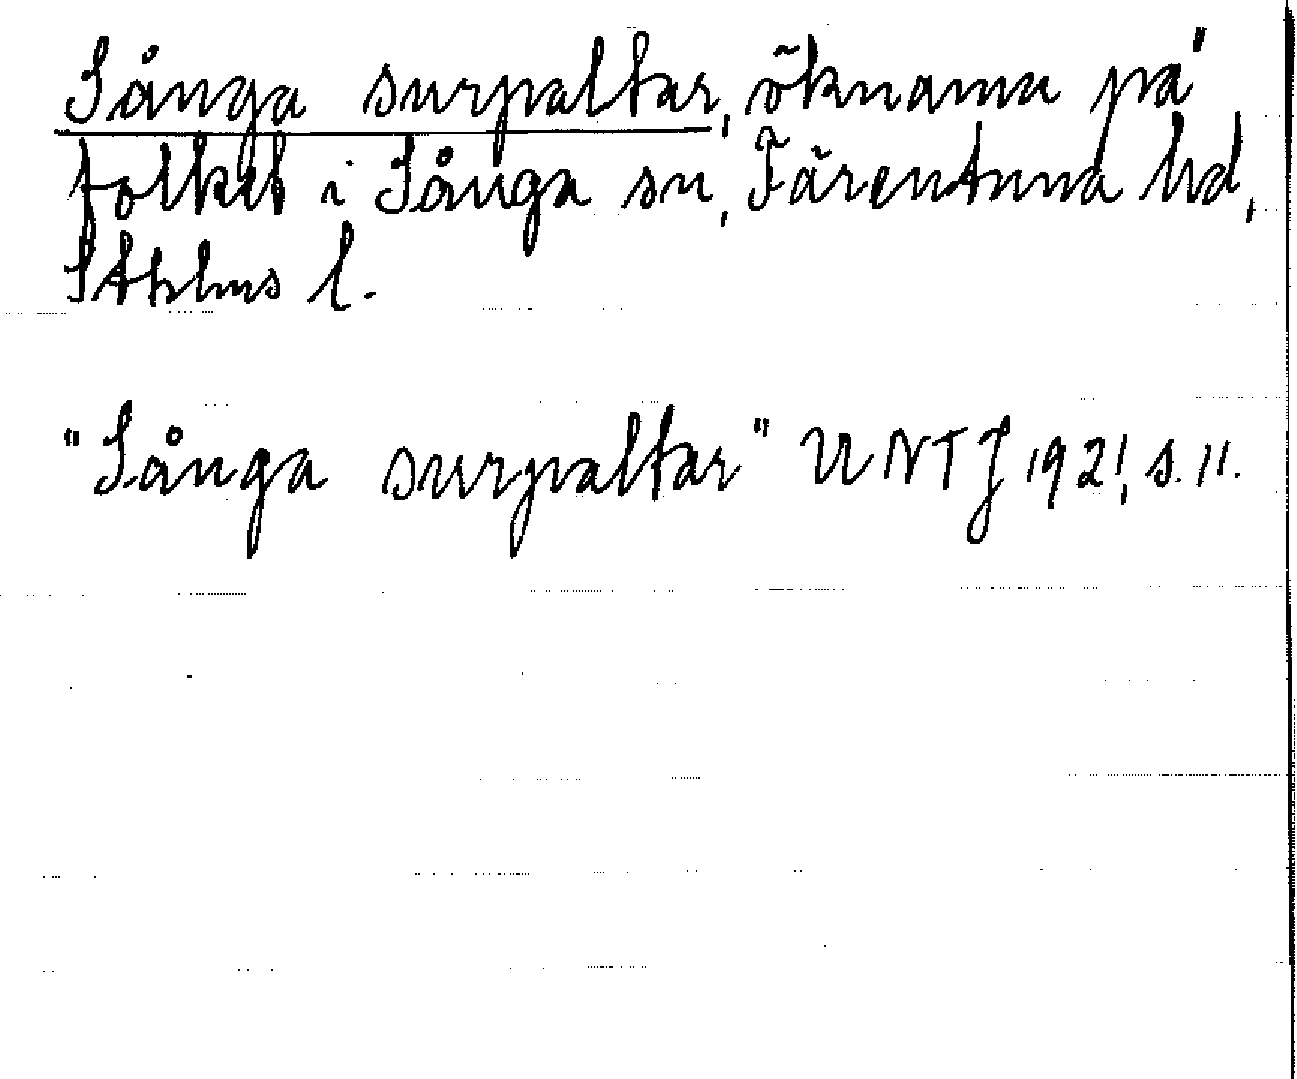 Sånga surpaltar, öknamn på
folket i Sånga sn, Färentuna hd,
Stkhms l.
"Sånga surpaltar" UNTJ 1921, s. 11.